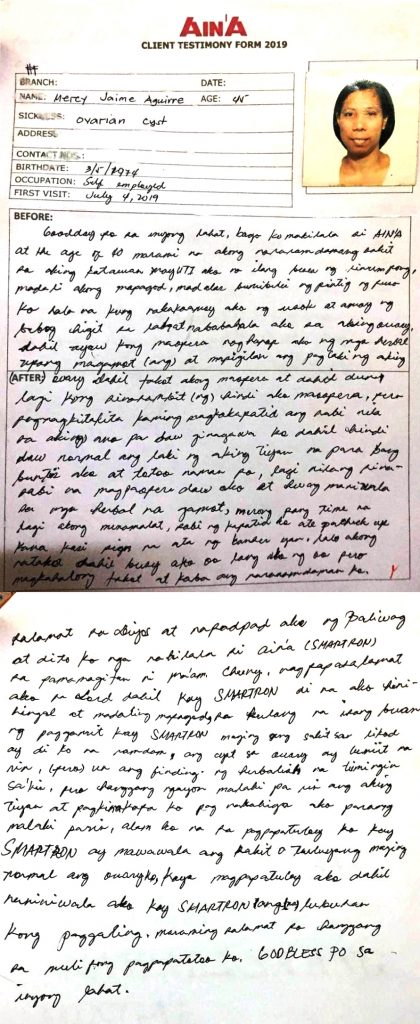 AIN'A
CLIENT TESTIMONY FORM 2019
BRANCH: DATE:
NAME: Mercy Jaime Aguirre AGE: 45
SICKNESS: Ovarian Cyst
ADDRESS
CONTACT NOS.:
BIRTHDATE: 3/5/1974
OCCUPATION: Self employed
FIRST VISIT: July 4, 2019
BEFORE:
Goodday po sa inyong lahat, bago ko makilala si AIN'A
at the age of 40 marami na akong nararamdamang sakit
sa aking katawan may UTI ako na ilang buwan ng
madali akong mapagod, madalas bumibilis ng pintig ng puso
ko lalo na kung nakakaamoy ako ng usok at amoy ng
higit sa lahat nababahala ako sa aking ovary,
dahil ayaw kong maopera naghanap ako ng mga herbal
upang magamot (ang) at mapigilan ang paglaki ng aking
(AFTER) ovary dahil takot akong maopera at dahil dun
lagi kong sinasambit (ng) hindi ako maopera, pero
pag nagkikita kita kaming magkakapatid ang sabi nila
sa akin ano pa daw ginagawa ko dahil hindi
daw normal ang laki ng aking tiyan na para bang
buntis ako at totoo naman po, lagi nilang sina-
sabi na magpaopera daw ako at huwag maniwala
sa mga herbal na gamot, mayrong pang time na
lagi akong minamalat, sabi ng kapatid ko ate
kana kasi sign na ata ng kanser yan, lalo akong
natakot dahil busy ako oo lang ako ng oo pero
magkahalong takot at kaba ang nararamdaman ko.
salamat sa diyos at napadpad ako ng Baliwag
at dito ko nga nakilala si Ain'a (SMARTRON)
sa pamamagitan ni ma'am Cheng, nagpapasalamat
ako sa Lord dahil kay SMARTRON di na ako hini-
hingal at madaling mapagod, sa kulang na isang buwan
ng paggamit kay SMARTRON maging ang sakit sa likod
ay di ko na ramdam, ang cyst sa ovary ay lumiit na
rin, (pero) un ang finding ng herbalist na tumingin
sa'kin, pero hanggang ngayon malaki pa rin ang aking
tiyan at pagkinakapa ko pag nakahiga ako parang
malaki parin, alam ko na sa pagpapatuloy ko kay
SMARTRON ay mawawala ang sakit o tuluyang maging
normal ang ovary ko, kaya magpapatuloy ako dahil
naniniwala ako kay SMARTRON (ang) lubusan
kong paggaling. maraming salamat po hanggang
sa muli pong pagpapatotoo ko. GODBLESS PO SA
inyong lahat.